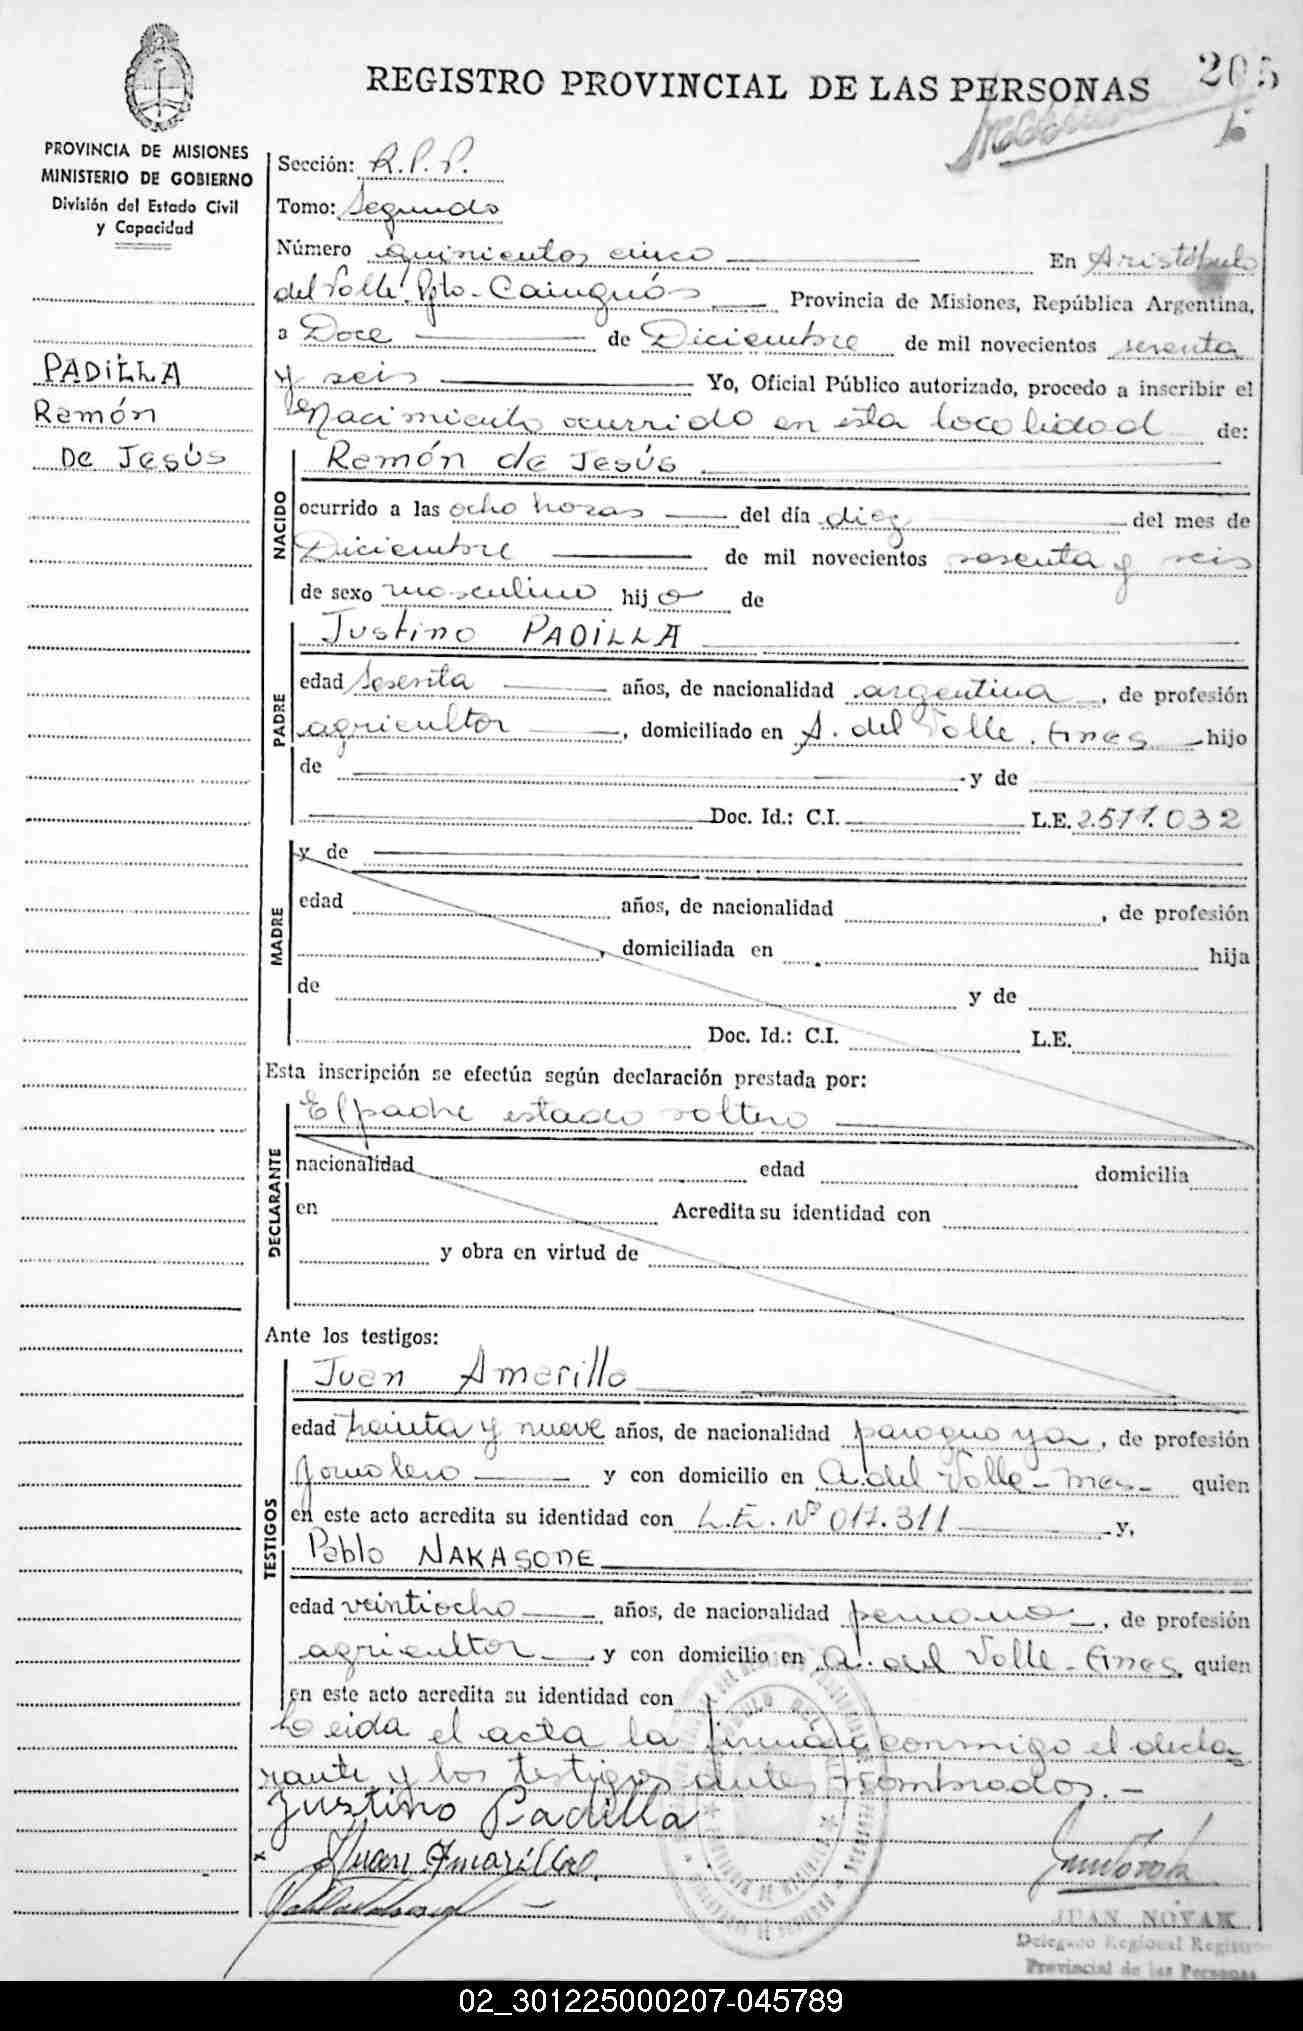 205
REGISTRO PROVINCIAL DE LAS PERSONAS
PROVINCIA DE MISIONES
MINISTERIO DE GOBIERNO
División del Estado Civil
y Capacidad
PADILLA
Ramón
De Jesús
Sección: R.P.P.
Tomo: Segundo
Número quinientos cinco En Aristóbulo
del Valle Dpto. Cainguás Provincia de Misiones, República Argentina,
a Doce de Diciembre de mil novecientos sesenta
y seis Yo, Oficial Público autorizado, procedo a inscribir el
Nacimiento ocurrido en esta localidad de:
NACIDO
Ramón de Jesús
ocurrido a las ocho horas del día diez del mes de
Diciembre de mil novecientos sesenta y seis
de sexo masculino hijo de
PADRE
Justino PADILLA
edad Sesenta años, de nacionalidad argentina, de profesión
agricultor, domiciliado en A. del Valle. Mnes hijo
de y de
Doc. Id.: C.I. L.E. 2.511.032
MADRE
y de
edad años, de nacionalidad , de profesión
, domiciliada en hija
de y de
Doc. Id.: C.I. L.E.
Esta inscripción se efectúa según declaración prestada por:
DECLARANTE
El padre estado soltero
nacionalidad edad domicilia
en Acredita su identidad con
y obra en virtud de
Ante los testigos:
TESTIGOS
Juan Amarilla
edad treinta y nueve años, de nacionalidad paraguaya, de profesión
Jornalero y con domicilio en A. del Valle - Mnes - quien
en este acto acredita su identidad con L.E. Nº 017.311 y,
Pablo NAKASONE
edad veintiocho años, de nacionalidad peruana, de profesión
agricultor y con domicilio en A. del Valle - Mnes, quien
en este acto acredita su identidad con
Leida el acta la firma conmigo el decla
rante y los testigos antes nombrados. -
Justino Padilla
x Juan Amarilla
JUAN NOVAK
Delegado Regional Registro
Provincial de las Personas
02_301225000207-045789